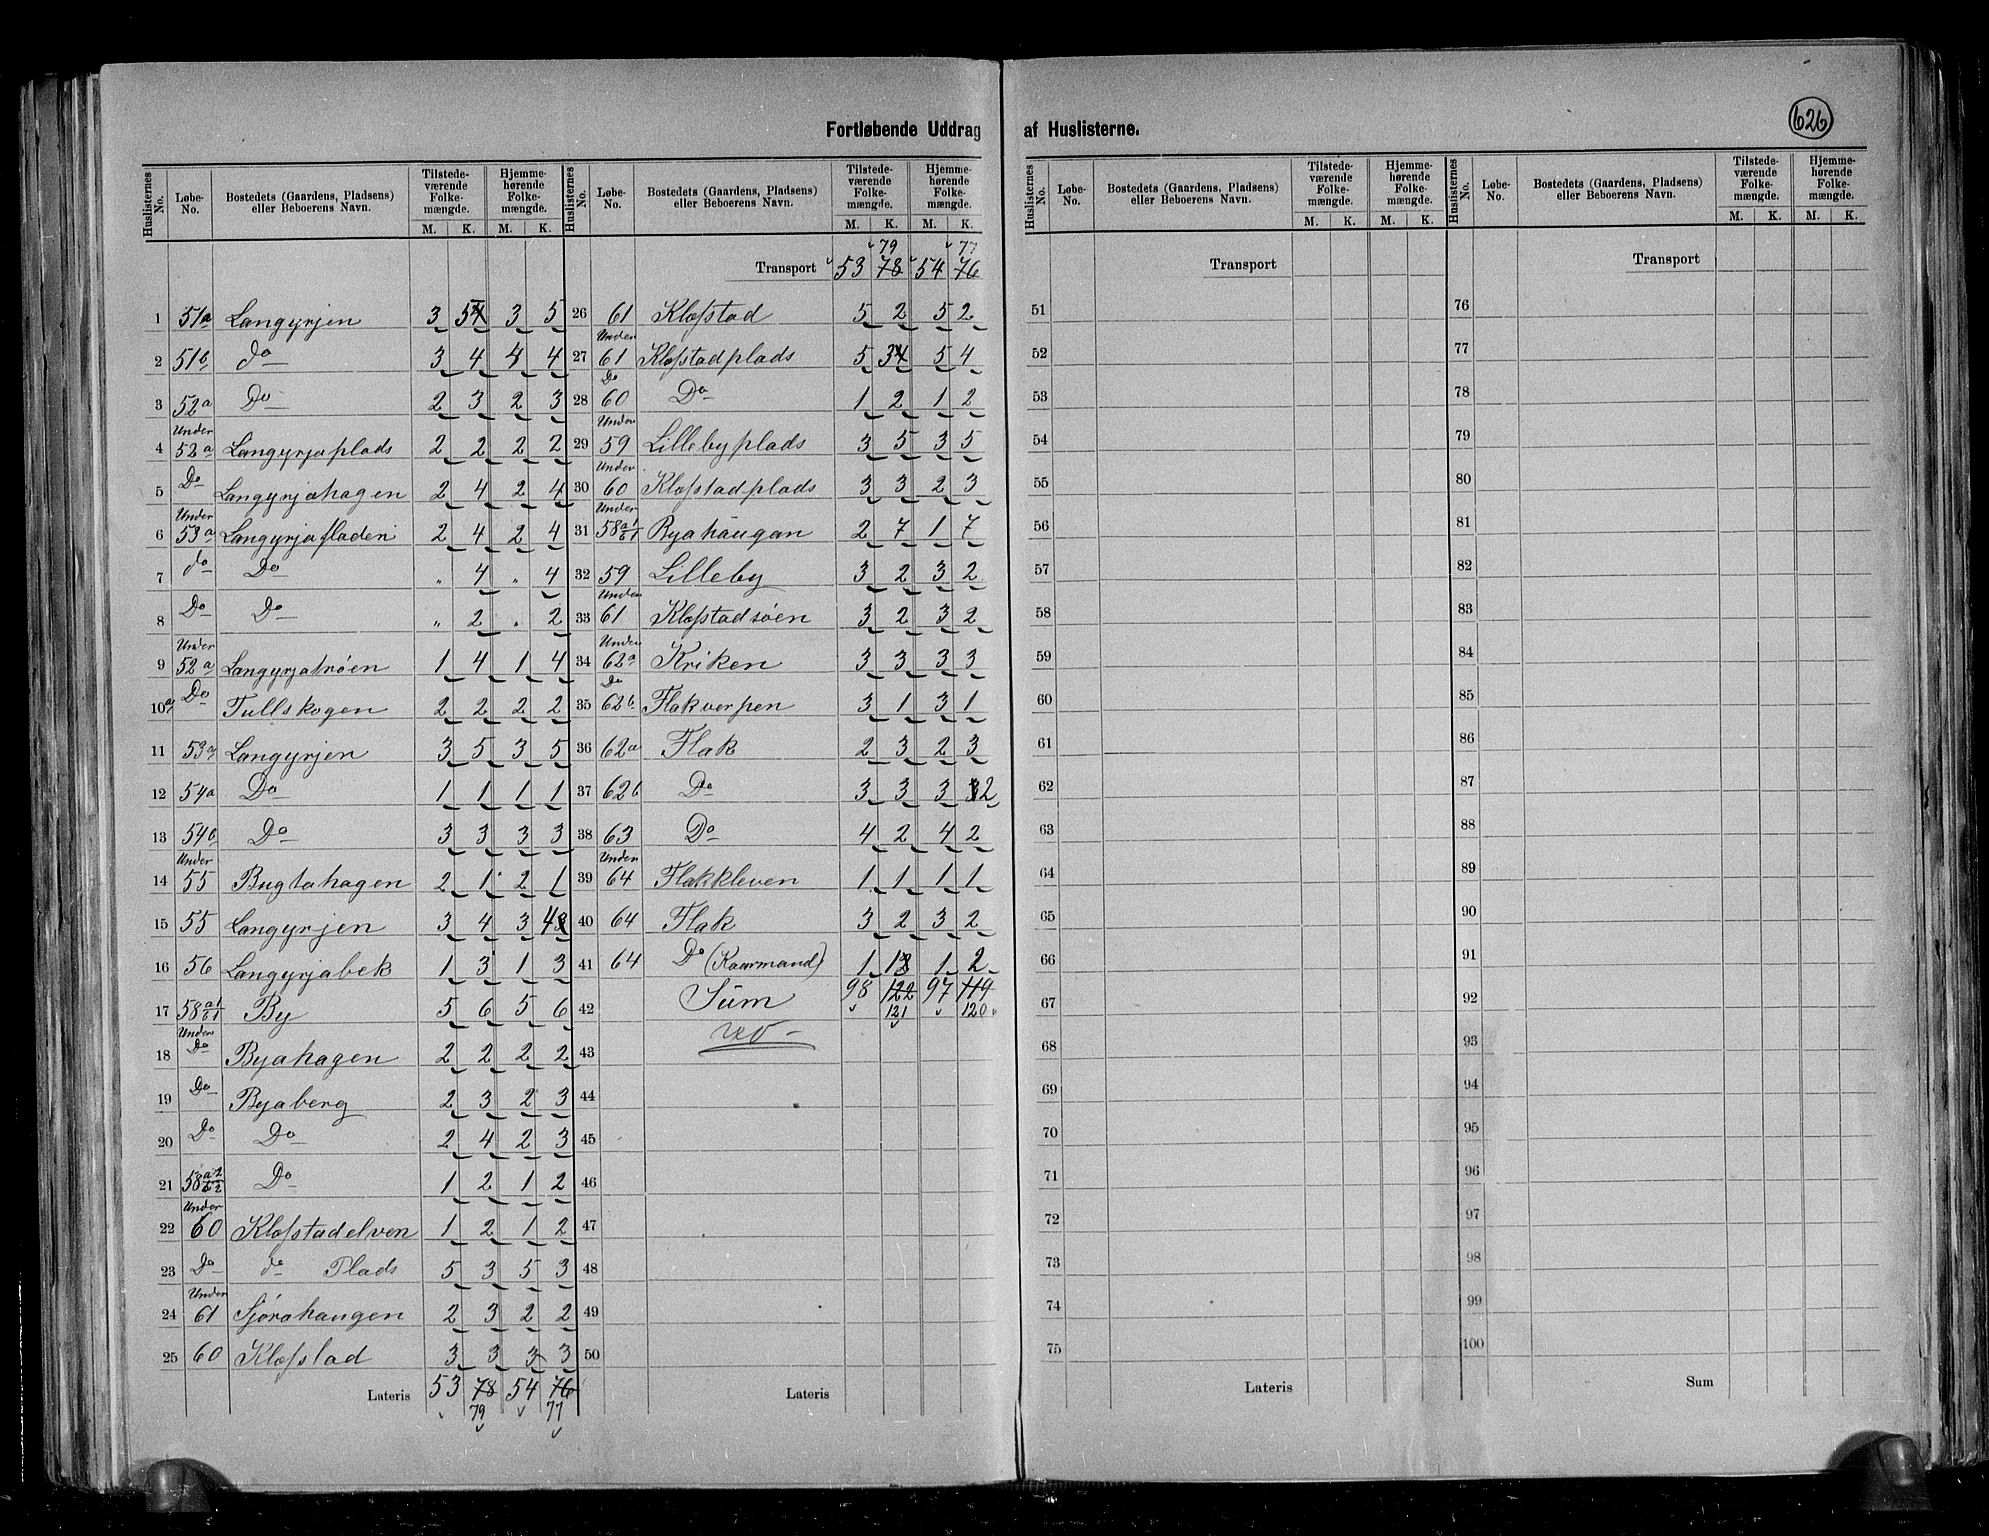 626
Fortløbende Uddrag af Huslisterne.
Huslisternes No. Løbe-No. Bostedets (Gaardens, Pladsens) eller Beboerens Navn. Tilstede-værende Folke-mængde. M. K. Hjemme-hørende Folke-mængde. M. K.
1 51a Langyrjen 3 5 3 5
2 51b do 3 4 4 4
3 52a Do 2 3 2 3
4 Under 52a Langyrjaplads 2 2 2 2
5 Do Langyrjahagen 2 4 2 4
6 Under 53a Langyrjafladen 2 4 2 4
7 do Do " 4 " 4
8 Do Do " 2 " 2
9 Under 52a Langyrjatrøen 1 4 1 4
10 Do Tullskogen 2 2 2 2
11 53a Langyrjen 3 5 3 5
12 54a Do 1 1 1 1
13 54b Do 3 3 3 3
14 Under 55 Bugtahagen 2 1 2 1
15 55 Langyrjen 3 4 3 4
16 56 Langyrjabek 1 3 1 3
17 58 a1/b1 By 5 6 5 6
18 Under Do Byahagen 2 2 2 2
19 Do Byaberg 2 3 2 3
20 Do Do 2 4 2 3
21 58 a2/b2 Do 1 2 1 2
22 Under 60 Klæfstadelven 1 2 1 2
23 Do do Plads 5 3 5 3
24 Under 61 Sjørahaugen 2 3 2 2
25 60 Klæfstad 3 3 3 3
Lateris 53 78 54 76
79 77
Huslisternes No. Løbe-No. Bostedets (Gaardens, Pladsens) eller Beboerens Navn. Tilstede-værende Folke-mængde. M. K. Hjemme-hørende Folke-mængde. M. K.
79 77
Transport 53 78 54 76
26 61 Klæfstad 5 2 5 2
27 Under 61 Klæfstadplads 5 3 5 4
28 Do 60 Do 1 2 1 2
29 Under 59 Lillebyplads 3 5 3 5
30 Under 60 Klæfstadplads 3 3 2 3
31 Under 58 a1/b1 Byahaugan 2 7 1 7
32 59 Lilleby 3 2 3 2
33 Under 61 Klæfstadsøen 3 2 3 2
34 Under 62a Kriken 3 3 3 3
35 Do 62b Flakverpen 3 1 3 1
36 62a Flak 2 3 2 3
37 62b Do 3 3 3 2
38 63 Do 4 2 4 2
39 Under 64 Flakkleven 1 1 1 1
40 64 Flak 3 2 3 2
41 64 Do (Kaarmand) 1 1 1 2
42 Sum 98 122 97 119
121 120
43
44
45
46
47
48
49
50
Lateris
Huslisternes No. Løbe-No. Bostedets (Gaardens, Pladsens) eller Beboerens Navn. Tilstede-værende Folke-mængde. M. K. Hjemme-hørende Folke-mængde. M. K.
Transport
51
52
53
54
55
56
57
58
59
60
61
62
63
64
65
66
67
68
69
70
71
72
73
74
75
Lateris
Huslisternes No. Løbe-No. Bostedets (Gaardens, Pladsens) eller Beboerens Navn. Tilstede-værende Folke-mængde. M. K. Hjemme-hørende Folke-mængde. M. K.
Transport
76
77
78
79
80
81
82
83
84
85
86
87
88
89
90
91
92
93
94
95
96
97
98
99
100
Sum